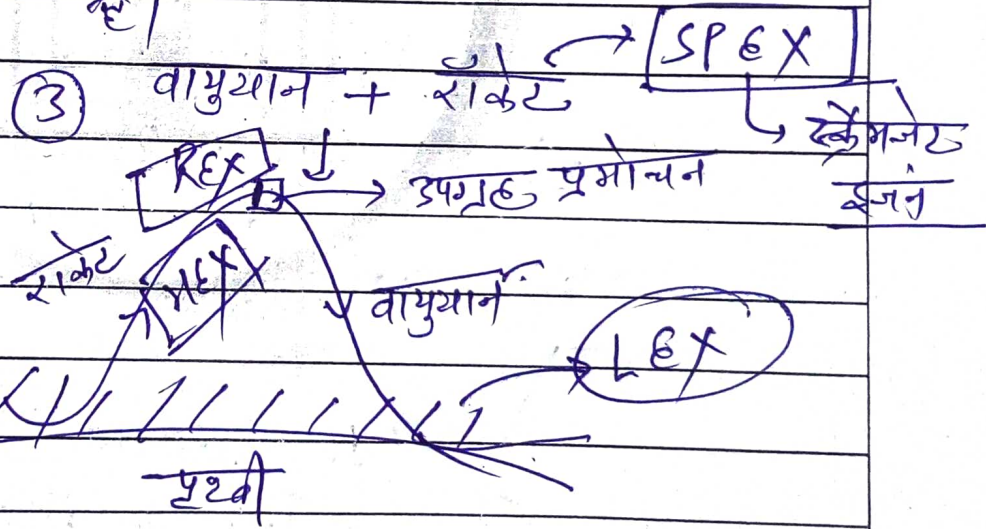 है।
③ वायुयान + रॉकेट → SPEX
↳ स्क्रैमजेट इंजन
REX → उपग्रह प्रमोचन
रॉकेट HEX वायुयान
LEX
पृथ्वी